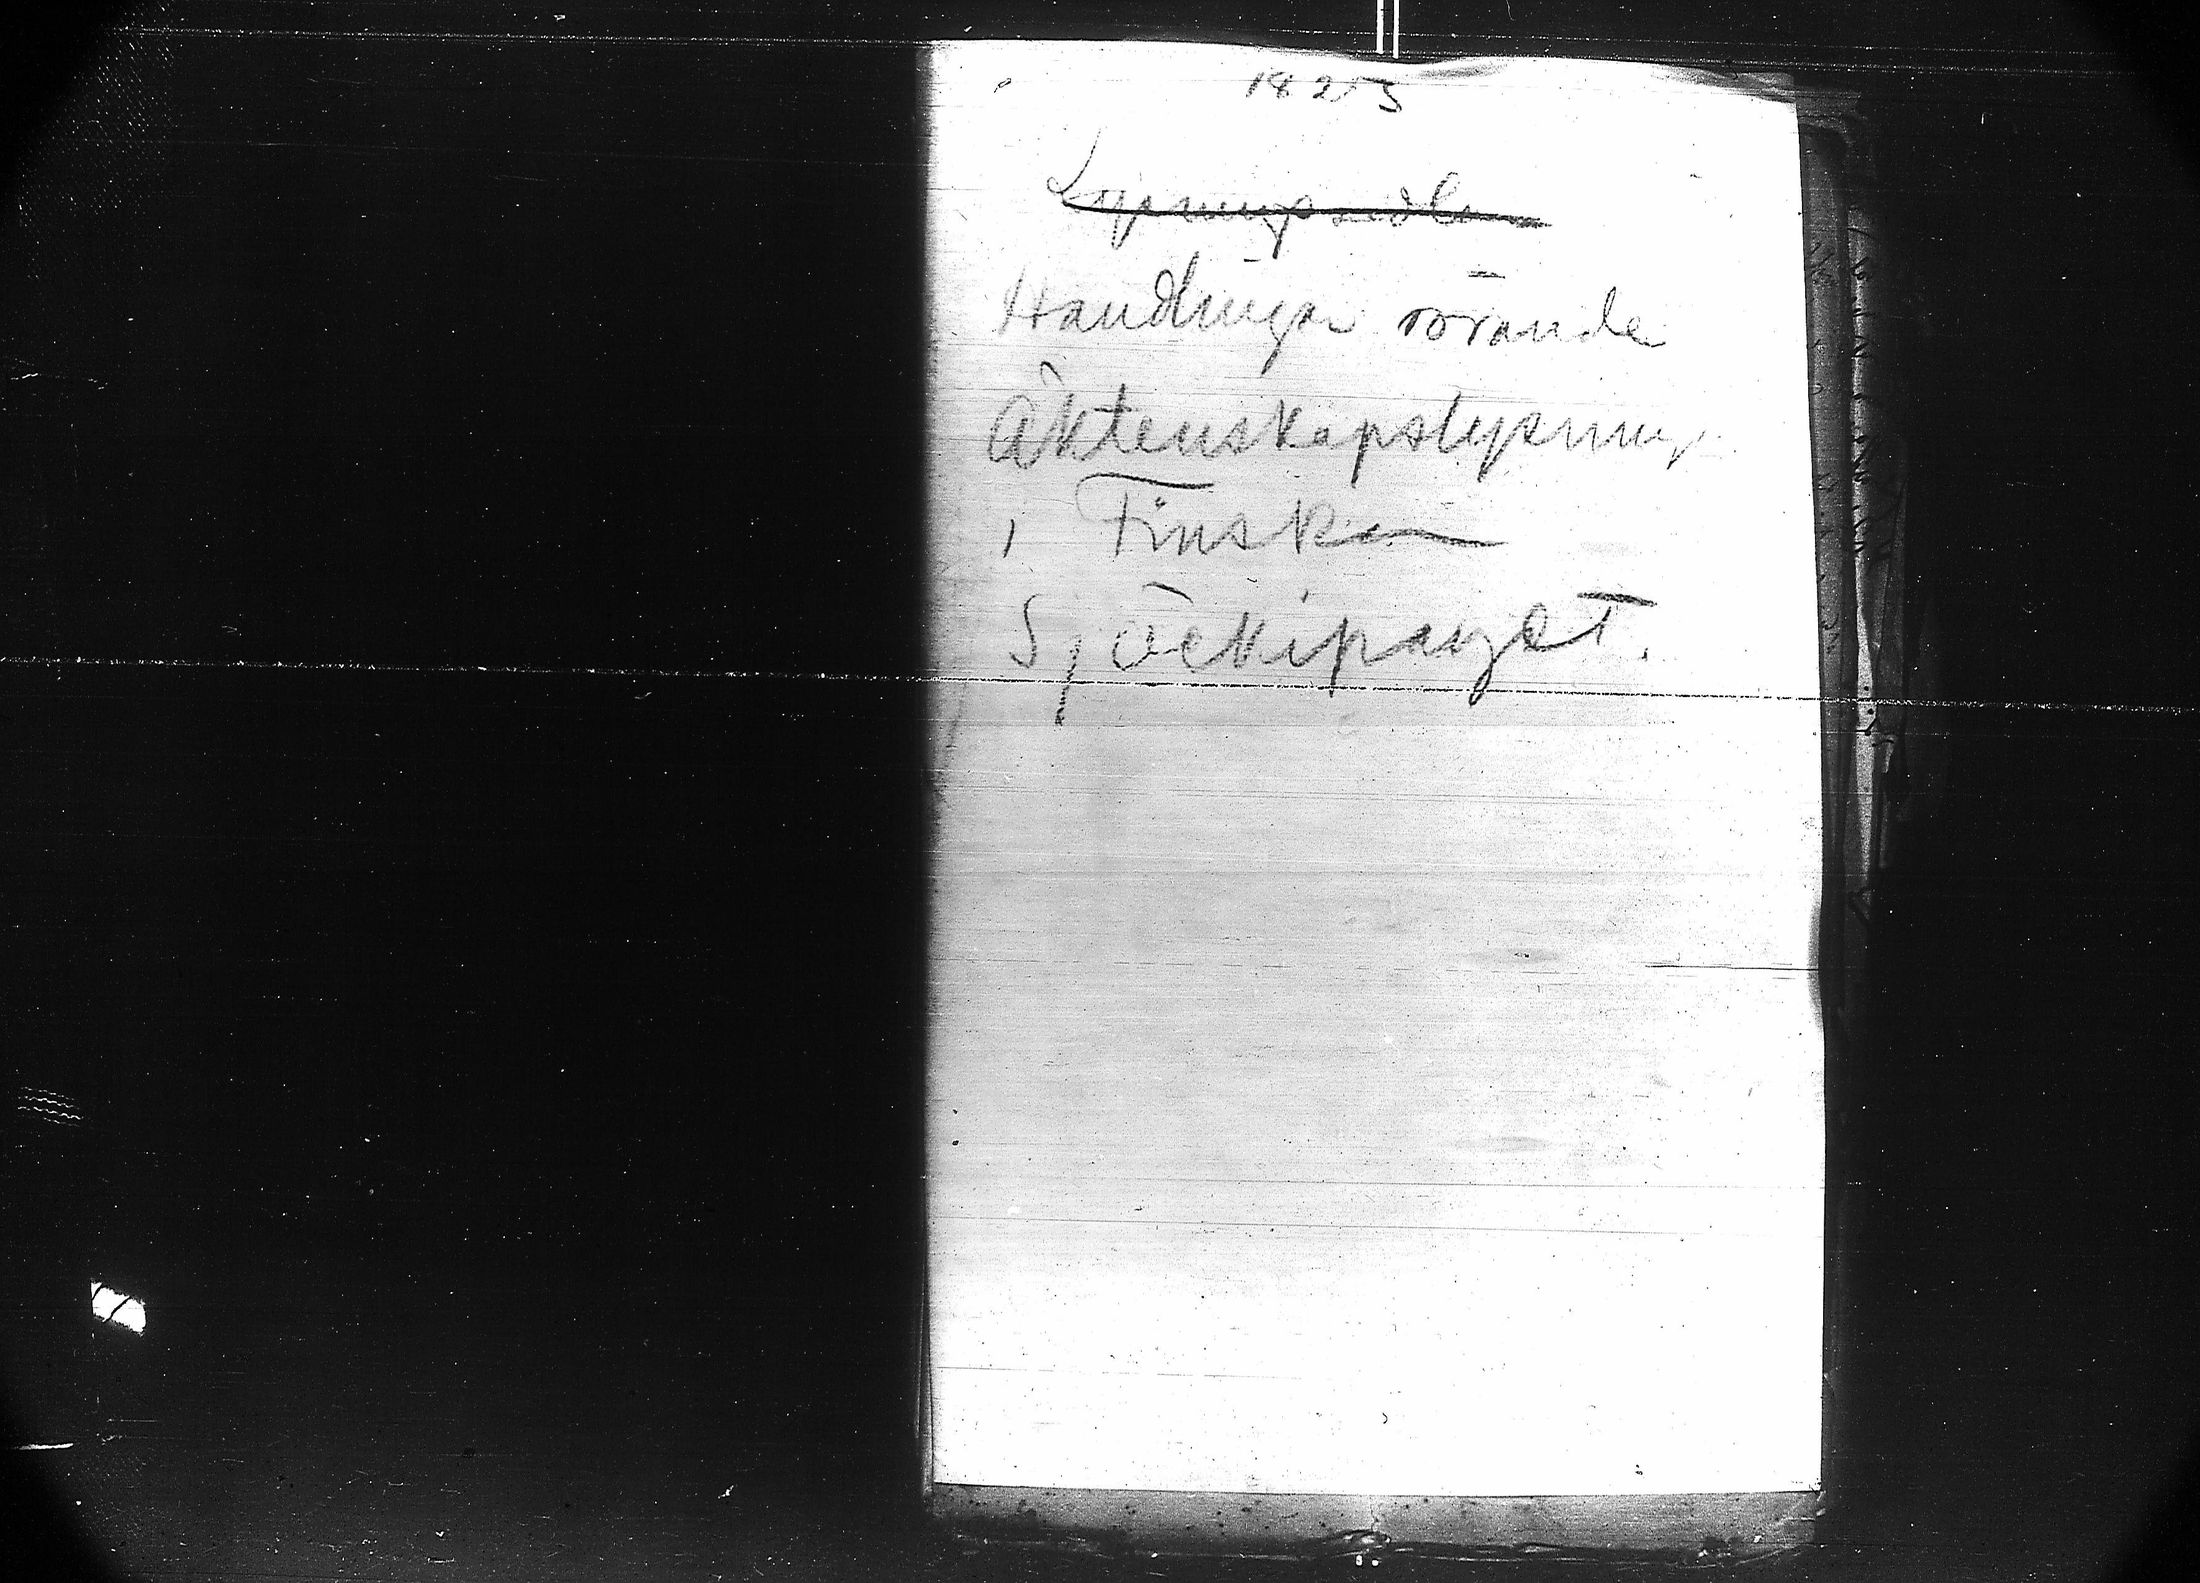 1825
Lysningssedlar
Handlingar rörande
Äktenskapslysning
i Finska
Sjöekipaget.